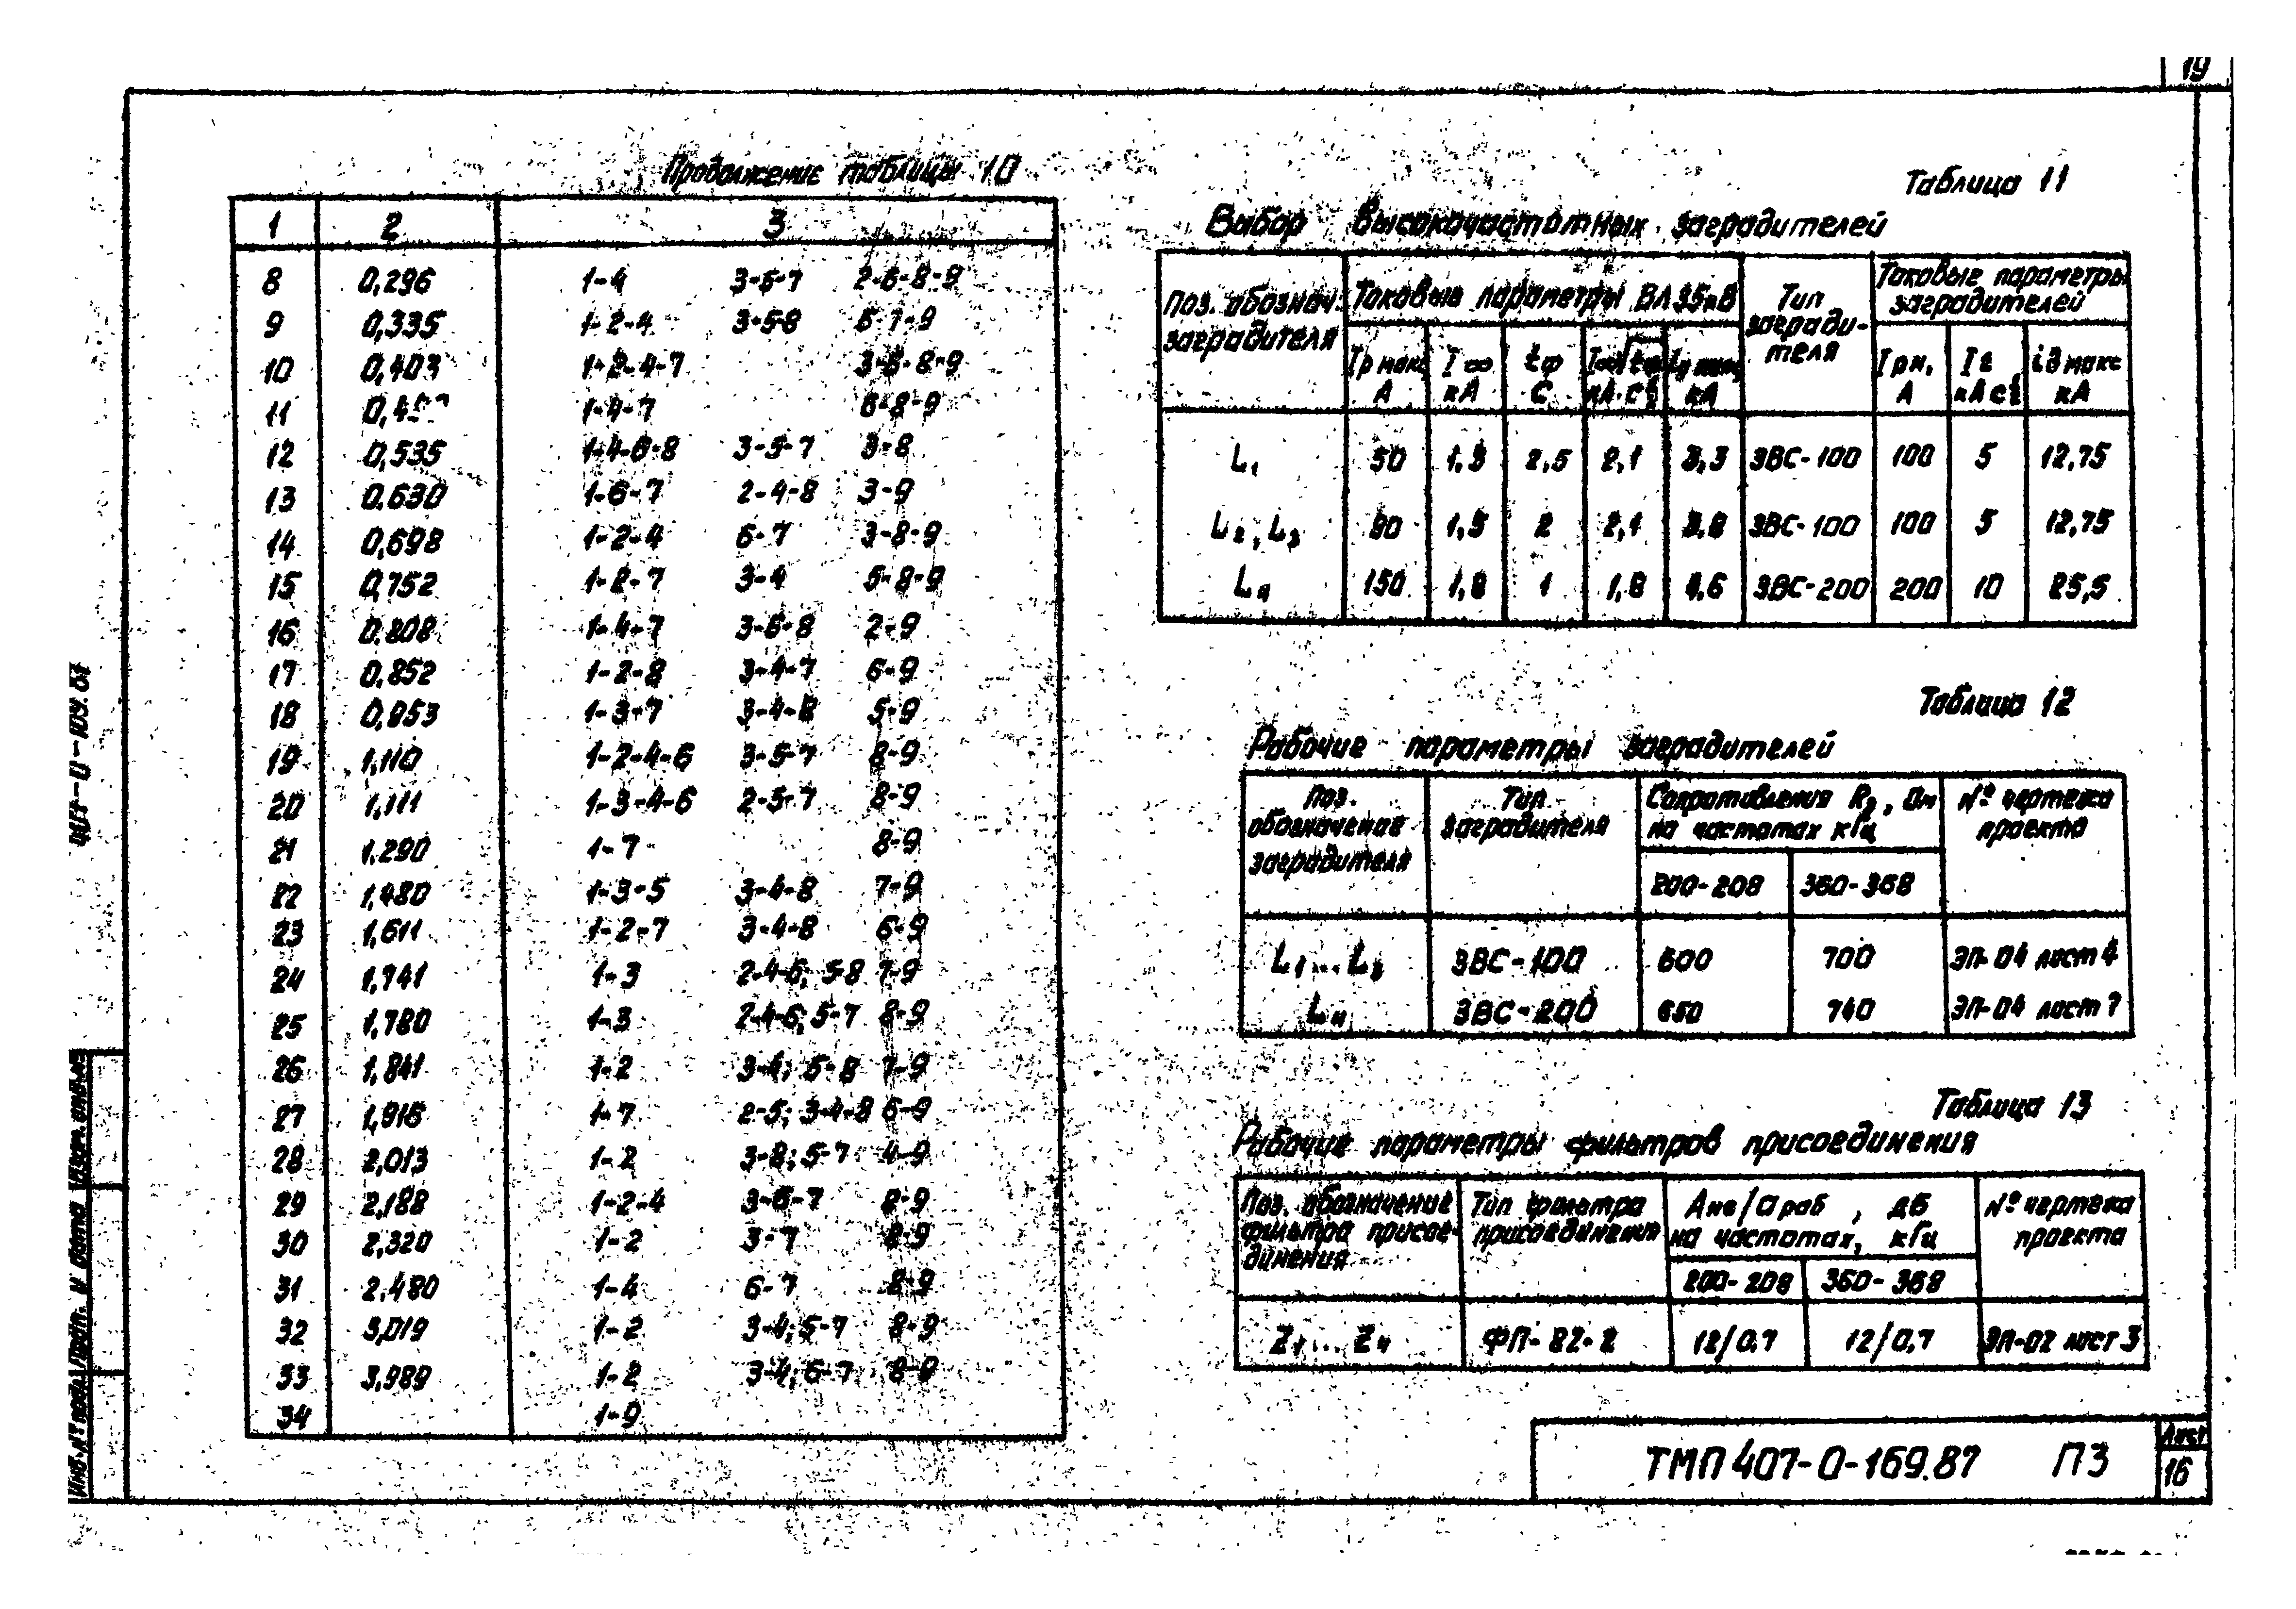 19
Продолжение таблицы 10
1 2 3
8 0,296 1-4 3-5-7 2-6-8-9
9 0,335 1-2-4 3-5-8 6-7-9
10 0,403 1-2-4-7 3-6-8-9
11 1-4-7 6-8-9
12 0,535 1-4-6-8 3-5-7 3-8
13 0.630 1-6-7 2-4-8 3-9
14 0,698 1-2-4 6-7 3-8-9
15 0,752 1-2-7 3-4 5-8-9
16 0.808 1-4-7 3-6-8 2-9
17 0,852 1-2-8 3-4-7 6-9
18 0,953 1-3-7 3-4-8 5-9
19 1,110 1-2-4-6 3-5-7 8-9
20 1,111 1-3-4-6 2-5-7 8-9
21 1.290 1-7 8-9
22 1,480 1-3-5 3-4-8 7-9
23 1,611 1-2-7 3-4-8 6-9
24 1,741 1-3 2-4-6; 5-8 7-9
25 1,780 1-3 2-4-6; 5-7 8-9
26 1,841 1-2 3-4; 6-8 7-9
27 1,916 1-7 2-5; 3-4-8 6-9
28 2,013 1-2 3-8; 5-7 4-9
29 2,188 1-2-4 3-6-7 8-9
30 2,320 1-2 3-7 8-9
31 2,480 1-4 6-7 8-9
32 3,019 1-2 3-4; 5-7 8-9
33 3,989 1-2 3-4; 6-7 8-9
34 1-9
Таблица 11
Выбор высокочастотных заградителей
Поз. обознач. заградителя
Токовые параметры ВЛ 35кВ
Тип загради-теля
Токовые параметры заградителей
Iр макс, А I∞ кА tф С кА·с½ кА Iрн, А It кА с½ iд макс кА
L1 50 1,3 2,5 2,1 3,3 ЗВС-100 100 5 12,75
L2, L3 90 1,5 2 2,1 3.8 ЗВС-100 100 5 12,75
L4 150 1,8 1 1,8 4,6 ЗВС-200 200 10 25,5
Таблица 12
Рабочие параметры заградителей
Поз. обозначение заградителя
Тип заградителя
Сопротивления Rз, Ом на частотах кГц
№ чертежа проекта
200-208 360-368
L1...L3 ЗВС-100 600 700 ЭП-04 лист 4
L4 ЗВС-200 650 740 ЭП-04 лист 7
Таблица 13
Рабочие параметры фильтров присоединения
Поз. обозначение фильтра присое-динения
Тип фильтра присоединения
Ане/Араб, дБ на частотах, кГц
№ чертежа проекта
200-208 360-368
Z1...Z4 ФП-82-2 12/0.7 12/0,7 ЭП-02 лист 3
ТМП 407-0-169.87 ПЗ
Лист
16
Инв.№ подл. Подп. и дата Взам. инв.№